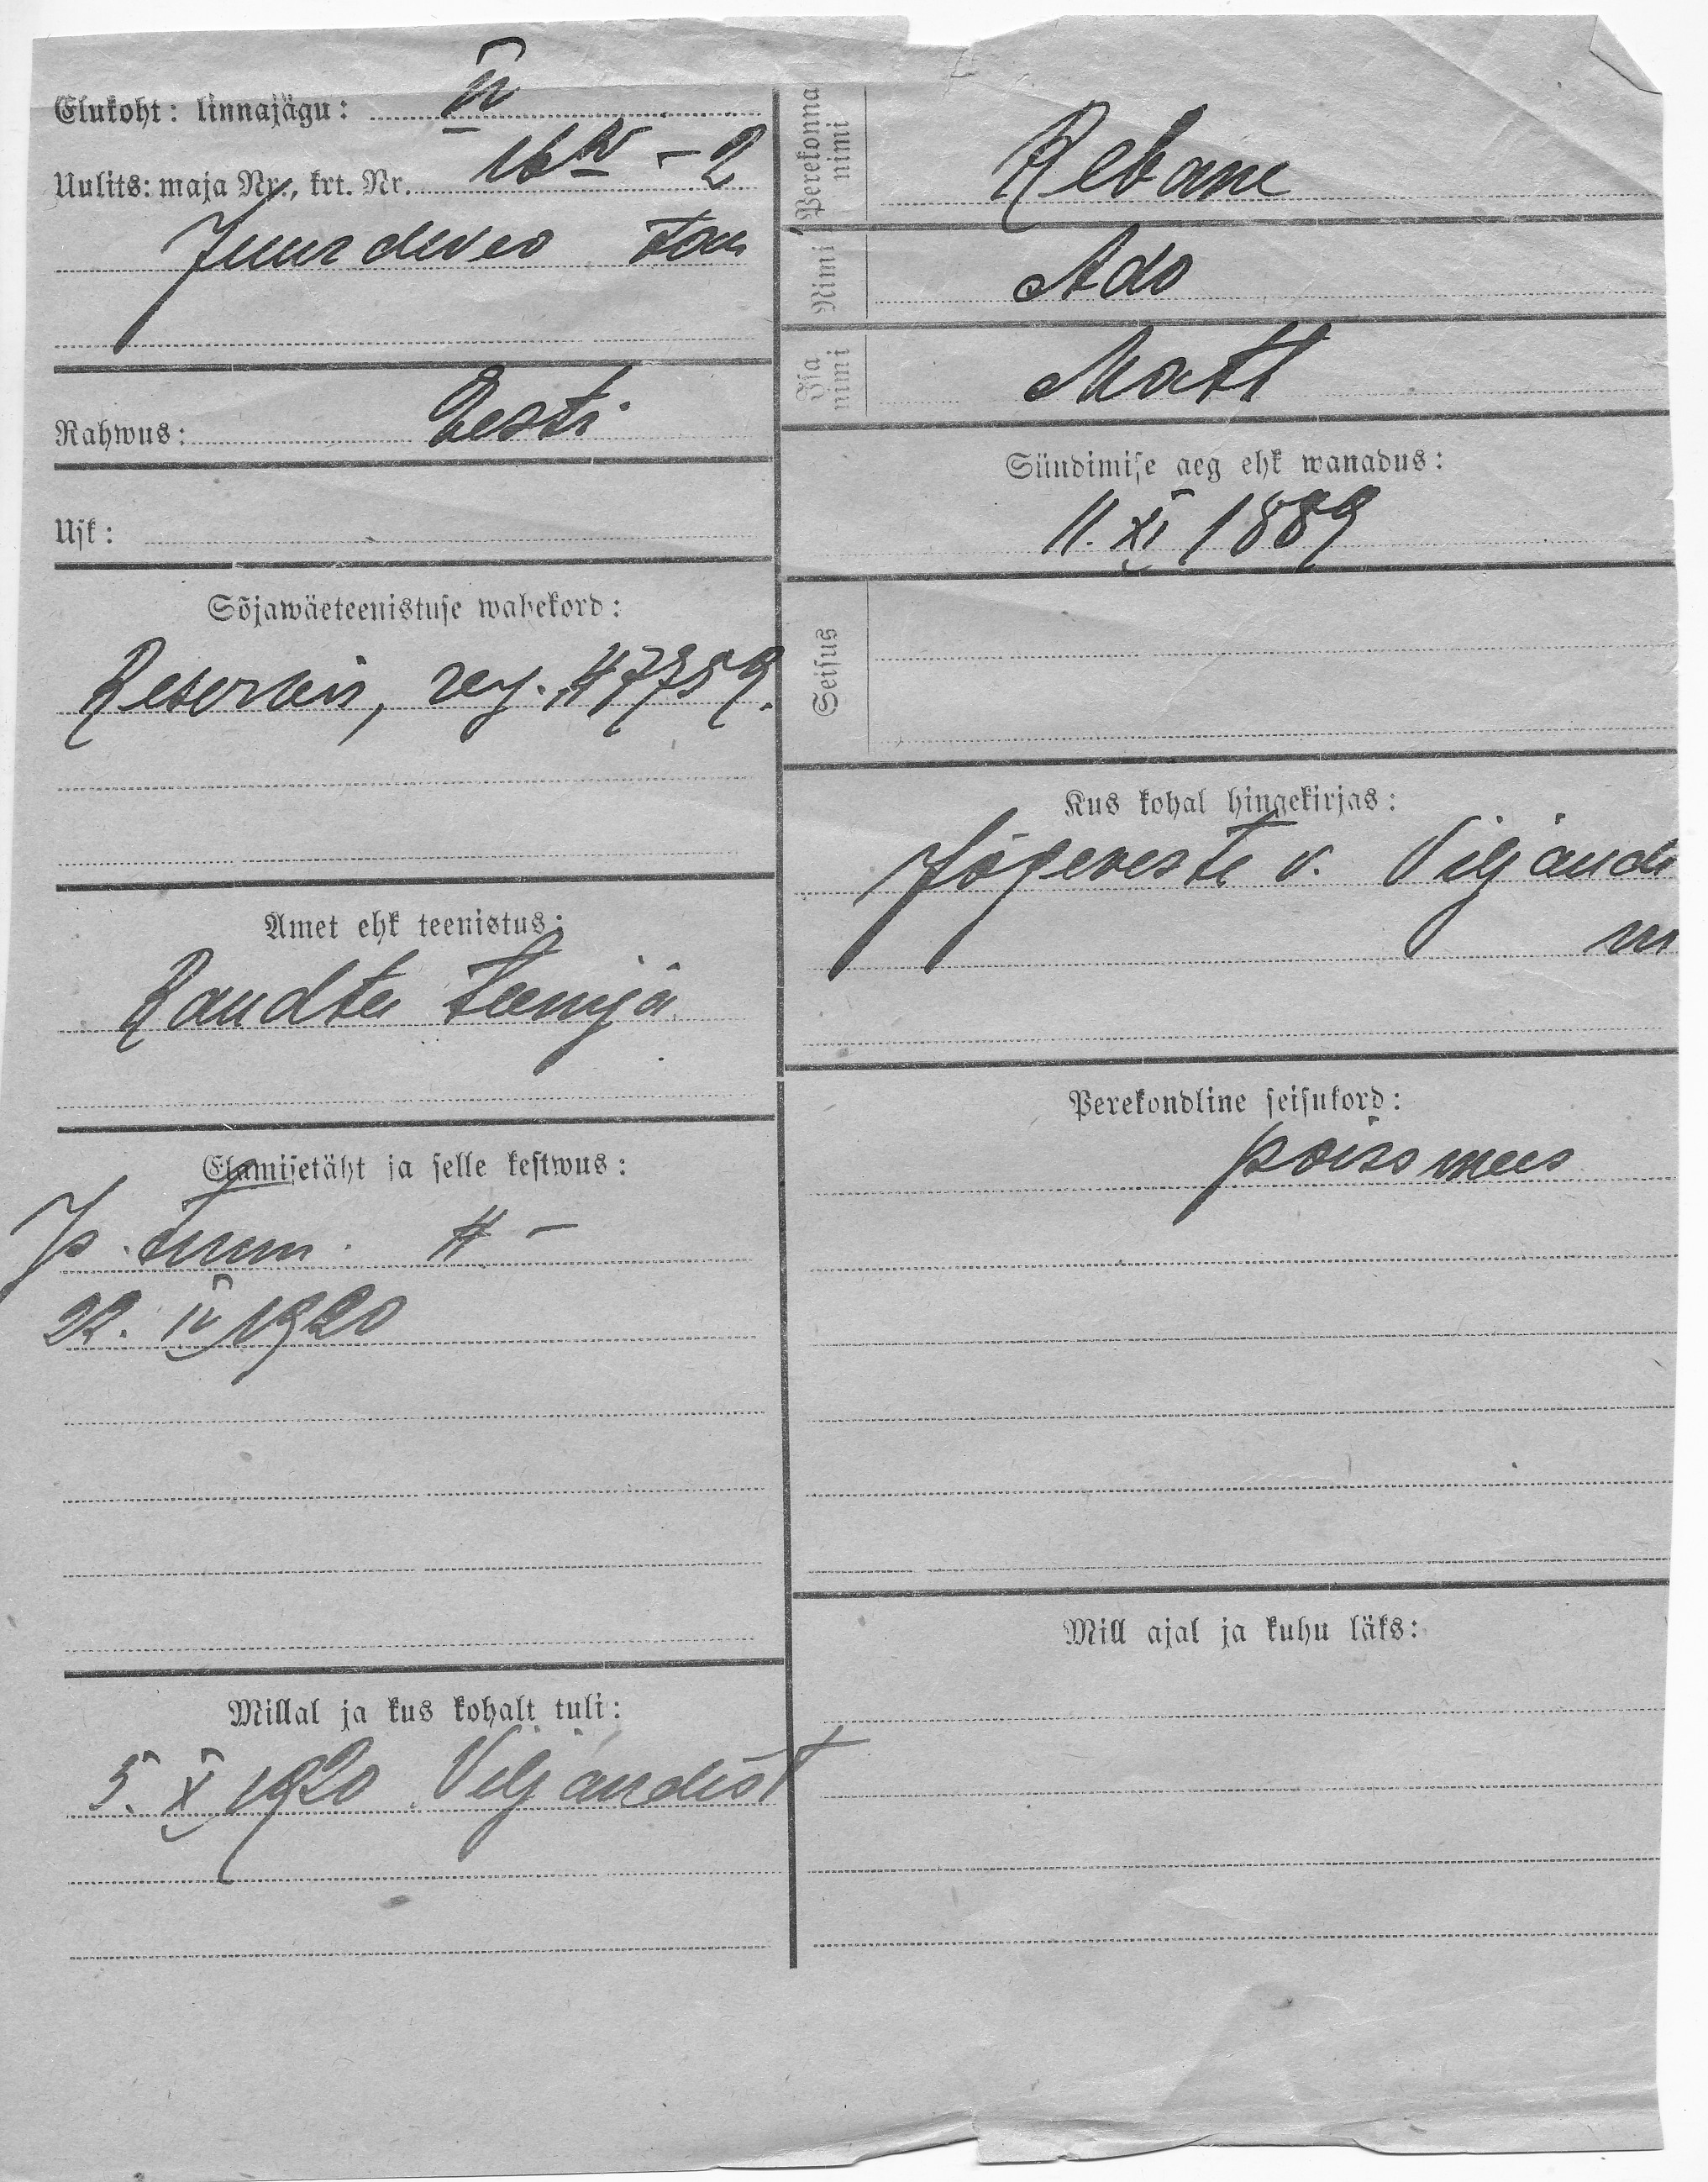 Elukoht: linnajagu: IV
Uulits: maja Nr., krt. Nr. 16 – 2
Juurdeveo tän
Rahwus: Eesti
Usk:
Sõjawäeteenistuse wahekord:
Reservis, reg. 47759.
Amet ehk teenistus:
Raudtee teenija
Elamisetäht ja selle kestwus:
Is. tunn. № –
22. IV 1920
Millal ja kus kohalt tuli:
5. X 1920 Viljandist
Perekonna nimi Rebane
Nimi Ado
Isa nimi Matt
Sündimise aeg ehk wanadus:
11. XI 1889
Seisus
Kus kohal hingekirjas:
Jõgeveste v. Viljandi
m
Perekondline seisukord:
poissmees
Mill ajal ja kuhu läks: